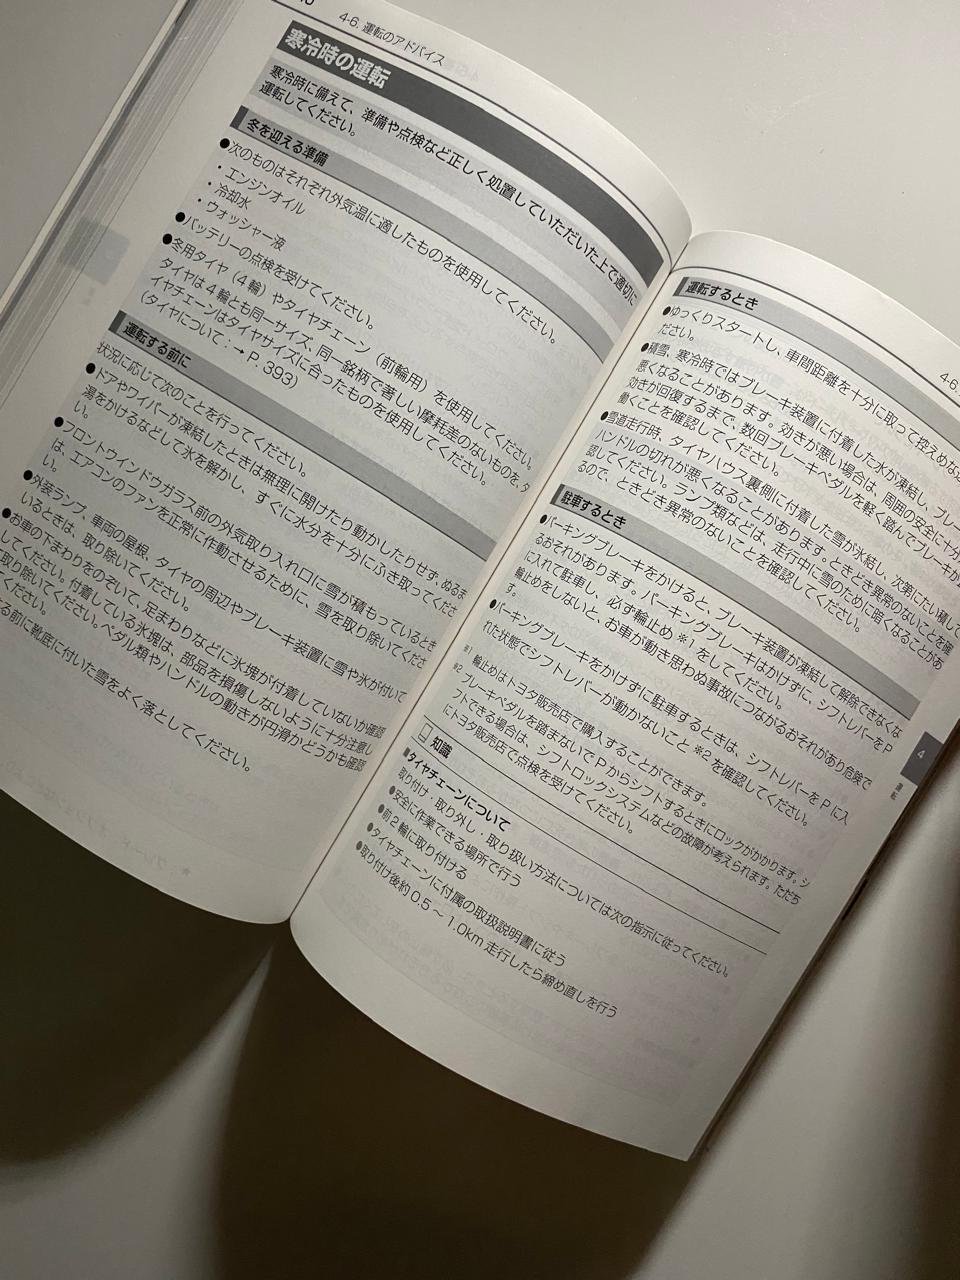 4-6. 運転のアドバイス
寒冷時の運転
寒冷時に備えて、準備や点検など正しく処置していただいた上で適切に
運転してください。
冬を迎える準備
●次のものはそれぞれ外気温に適したものを使用してください。
・エンジンオイル
・冷却水
・ウォッシャー液
●バッテリーの点検を受けてください。
●冬用タイヤ（4 輪）やタイヤチェーン（前輪用）を使用してください。
タイヤは 4 輪とも同一サイズ、同一銘柄で著しい摩耗差のないものを、タ
イヤチェーンはタイヤサイズに合ったものを使用してください。
（タイヤについて：→ P. 393）
運転する前に
状況に応じて次のことを行ってください。
●ドアやワイパーが凍結したときは無理に開けたり動かしたりせず、ぬるま
湯をかけるなどして氷を解かし、すぐに水分を十分にふき取ってくださ
い。
●フロントウインドウガラス前の外気取り入れ口に雪が積もっているとき
は、エアコンのファンを正常に作動させるために、雪を取り除いてくださ
い。
●外装ランプ、車両の屋根、タイヤの周辺やブレーキ装置に雪や氷が付いて
いるときは、取り除いてください。
●お車の下まわりをのぞいて、足まわりなどに氷塊が付着していないか確認
してください。付着している氷塊は、部品を損傷しないように十分注意し
取り除いてください。ペダル類やハンドルの動きが円滑かどうかも確認
ください。
る前に靴底に付いた雪をよく落としてください。
4-6.
運転するとき
●ゆっくりスタートし、車間距離を十分に取って控えめな
ださい。
●積雪、寒冷時ではブレーキ装置に付着した水が凍結し、ブレー
悪くなることがあります。効きが悪い場合は、周囲の安全に十分
効きが回復するまで、数回ブレーキペダルを軽く踏んでブレーキが
働くことを確認してください。
●雪道走行時、タイヤハウス裏側に付着した雪が氷結し、次第にたい積して
ハンドルの切れが悪くなることがあります。ときどき異常のないことを確
認してください。ランプ類などは、走行中に雪のために暗くなることがあ
るので、ときどき異常のないことを確認してください。
駐車するとき
●パーキングブレーキをかけると、ブレーキ装置が凍結して解除できなくな
るおそれがあります。パーキングブレーキはかけずに、シフトレバーを P
に入れて駐車し、必ず輪止め ※1 をしてください。
輪止めをしないと、お車が動き思わぬ事故につながるおそれがあり危険で
す。
●パーキングブレーキをかけずに駐車するときは、シフトレバーを P に入
れた状態でシフトレバーが動かないこと ※2 を確認してください。
※1 輪止めはトヨタ販売店で購入することができます。
※2 ブレーキペダルを踏まないで P からシフトするときにロックがかかります。シ
フトできる場合は、シフトロックシステムなどの故障が考えられます。ただち
にトヨタ販売店で点検を受けてください。
知識
■タイヤチェーンについて
取り付け・取り外し・取り扱い方法については次の指示に従ってください。
●安全に作業できる場所で行う
●前 2 輪に取り付ける
●タイヤチェーンに付属の取扱説明書に従う
●取り付け後約 0.5 ～ 1.0km 走行したら締め直しを行う
4
運転